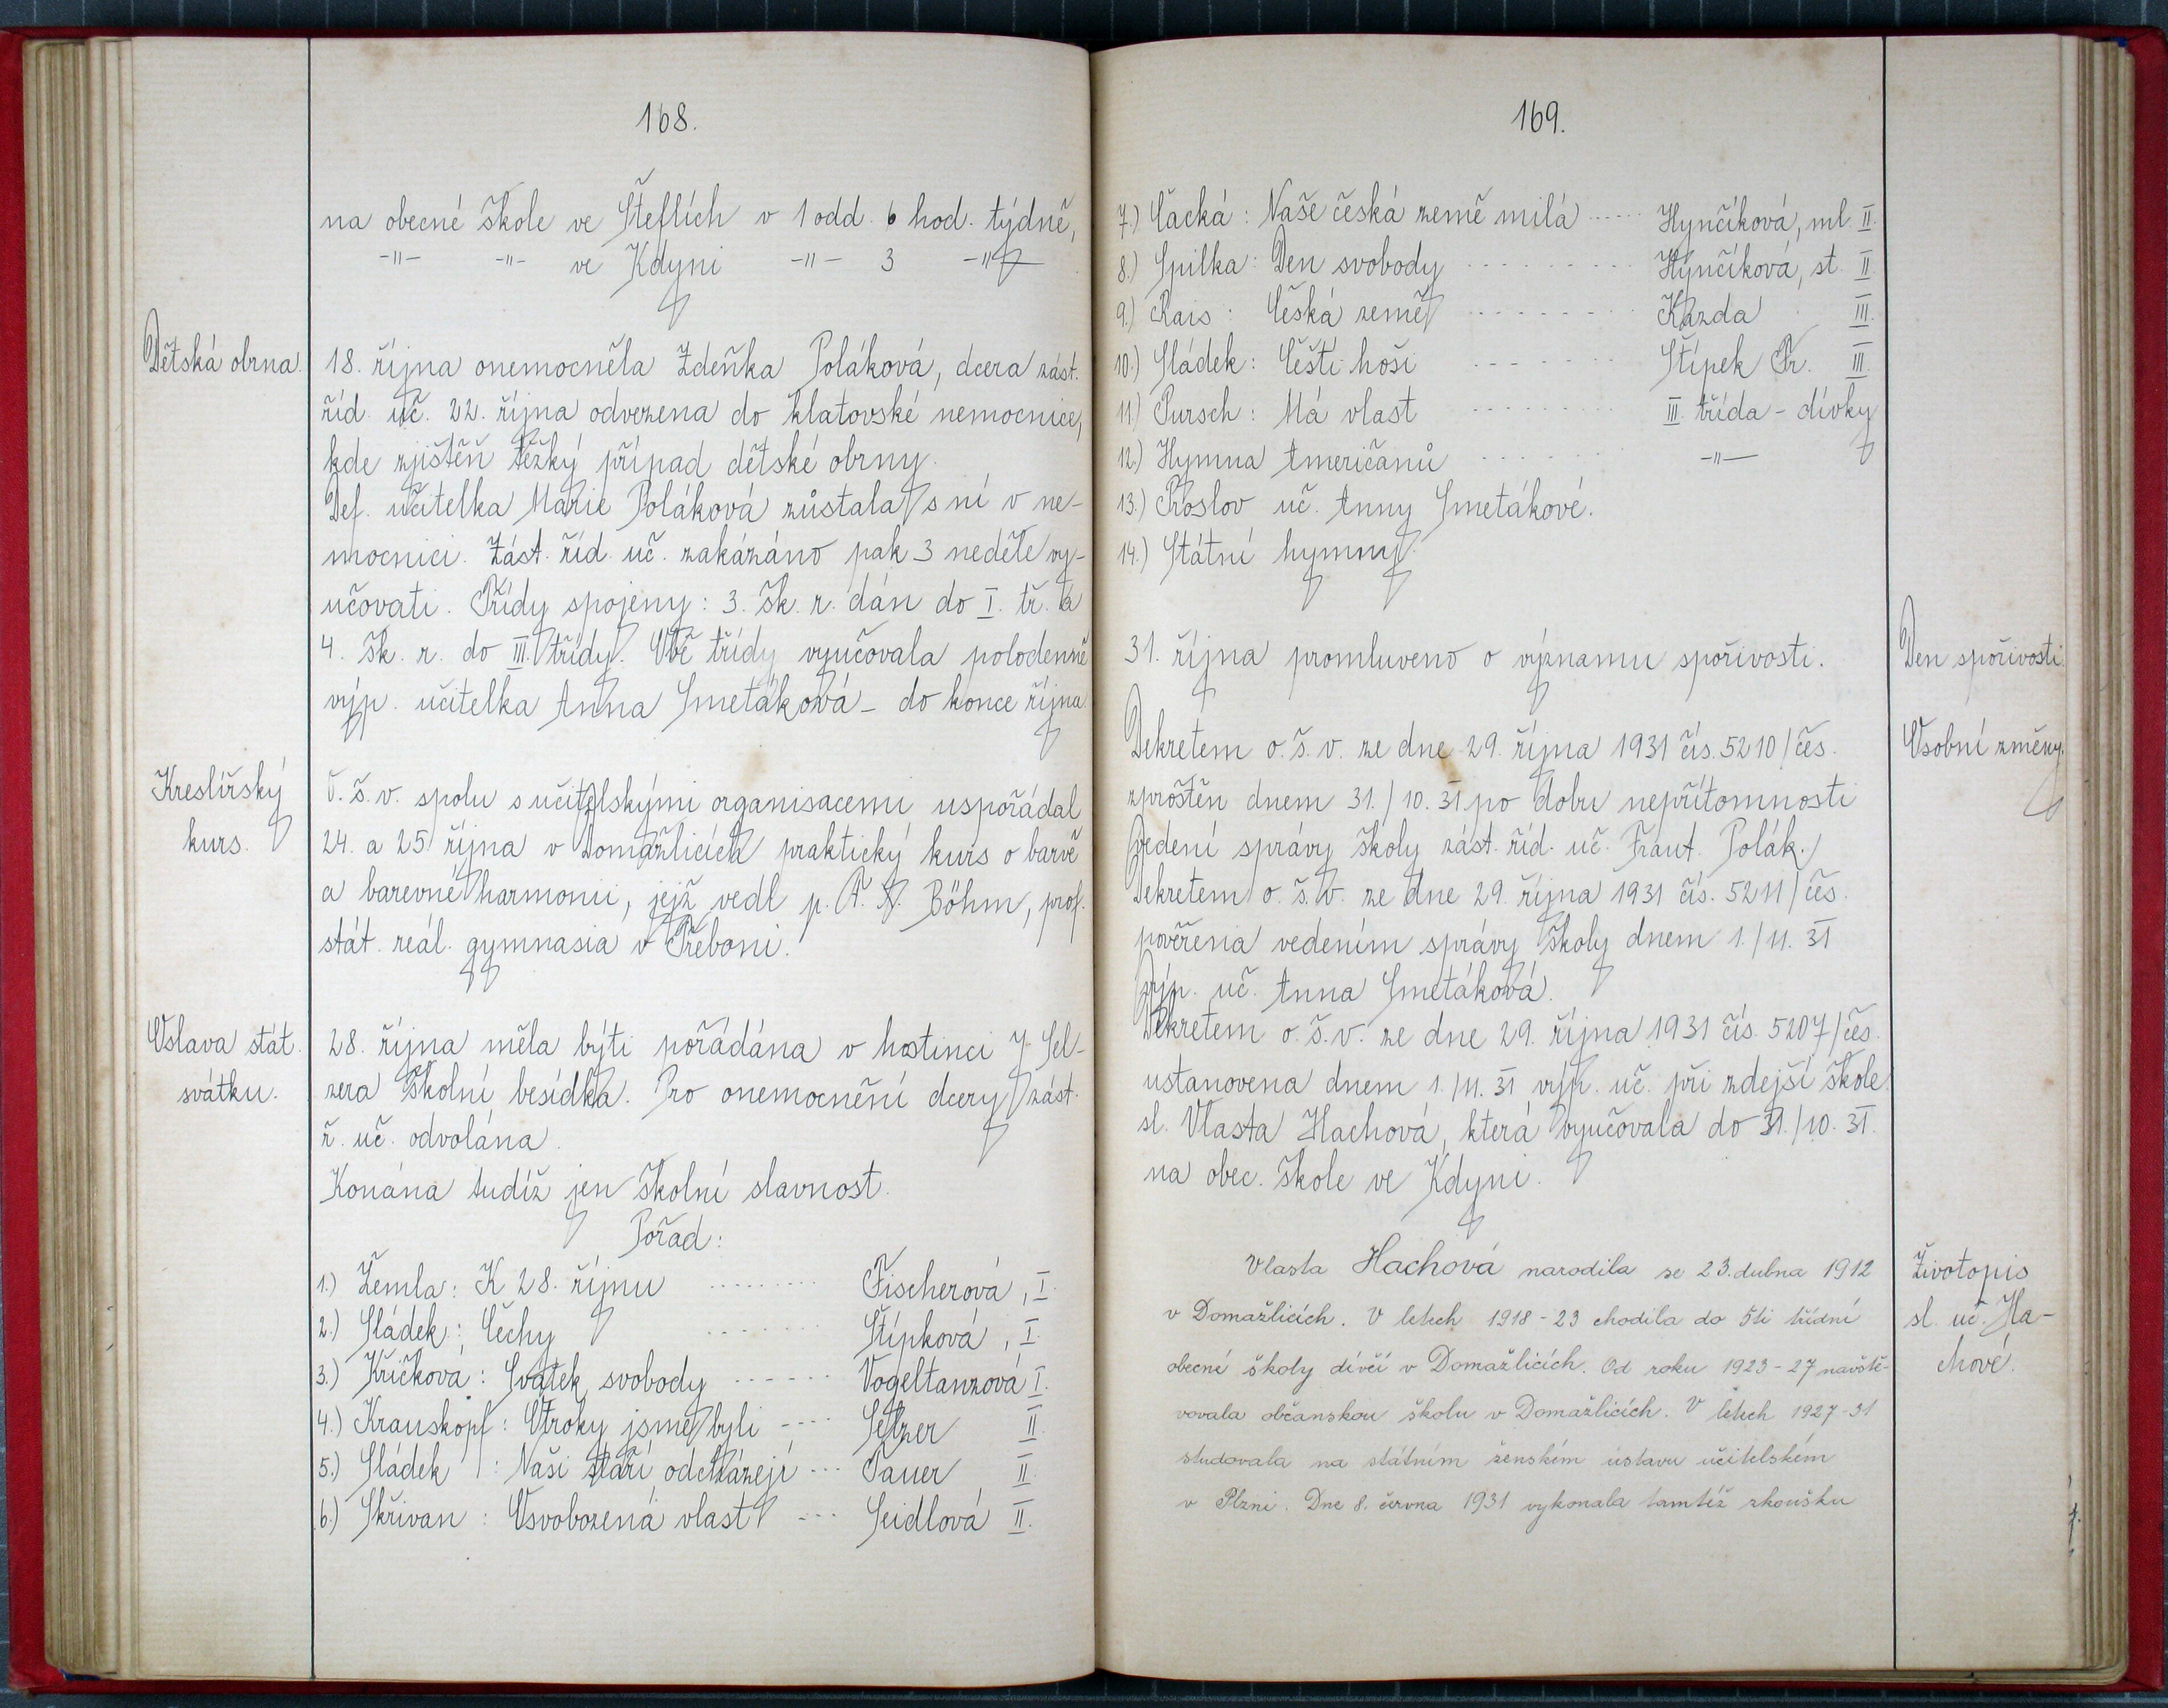 168.
na obecné škole ve Šteflích v 1 odd. 6 hod. týdně,
-"- -"- ve Kdyni -"- 3 -"-
Dětská obrna.
18. října onemocněla Zdeňka Poláková, dcera zást.
říd. uč. 22. října odvezena do klatovské nemocnice,
kde zjištěn těžký případ dětské obrny.
Def. učitelka Marie Poláková zůstala s ní v ne-
mocnici. Zást. říd. uč. zakázáno pak 3 neděle vy-
učovati. Třídy spojeny: 3. šk. r. dán do I. tř. a
4. šk. r. do III. třídy. Obě třídy vyučovala polodenně
výp. učitelka Anna Smetáková - do konce října.
Kreslířský
kurs.
O. š. v. spolu s učitelskými organisacemi uspořádal
24. a 25. října v Domažlicích praktický kurs o barvě
a barevné harmonii, jejž vedl p. Böhm, prof.
stát. reál. gymnasia v Třeboni.
Oslava stát.
svátku.
28. října měla býti pořádána v hostinci J. Sel-
zera školní besídka. Pro onemocnění dcery zást.
ř. uč. odvolána.
Konána tudíž jen školní slavnost.
Pořad:
1.) Žemla: K 28. říjnu ......... Fischerová, I.
2.) Sládek: Čechy ......... Štípková, I.
3.) Křičková: Svátek svobody ...... Vogeltanzová I.
4.) Krauskopf: Otroky jsme byli .... Selzer II.
5.) Sládek: Naši staří odcházejí ... Pauer II.
6.) Skřivan: Osvobozená vlast ... Seidlová II.
169.
7.) Čacká: Naše česká země milá ...... Hynčíková, ml. II.
8.) Spilka: Den svobody ......... Hynčíková, st. II.
9.) Rais: Česká země ........ Kazda III.
10.) Sládek: Čeští hoši ... ..... Štípek Fr. III.
11.) Pursch: Má vlast ......... III. třída - dívky
12.) Hymna Američanů ......... -"-
13.) Proslov uč. Anny Smetákové.
14.) Státní hymny.
31. října promluveno o významu spořivosti.
Den spořivosti.
Dekretem o. š. v. ze dne 29. října 1931 čís. 5210/čes.
Osobní změny.
zproštěn dnem 31./10. 31 po dobu nepřítomnosti
vedení správy školy zást. říd. uč. Frant. Polák.
Dekretem o. š. v. ze dne 29. října 1931 čís. 5211/čes.
pověřena vedením správy školy dnem 1./11. 31
výp. uč. Anna Smetáková.
Dekretem o. š. v. ze dne 29. října 1931 čís. 5207/čes.
ustanovena dnem 1./11. 31 výp. uč. při zdejší škole
sl. Vlasta Hachová, která vyučovala do 31./10. 31.
na obec. škole ve Kdyni.
Vlasta Hachová narodila se 23. dubna 1912
Životopis
v Domažlicích. V letech 1918-23 chodila do 5ti třídní
sl. uč. Ha-
obecní školy dívčí v Domažlicích. Od roku 1923-27 navště-
chové.
vovala občanskou školu v Domažlicích. V letech 1927-31
studovala na státním ženském ústavu učitelském
v Plzni. Dne 8. června 1931 vykonala tamtéž zkoušku